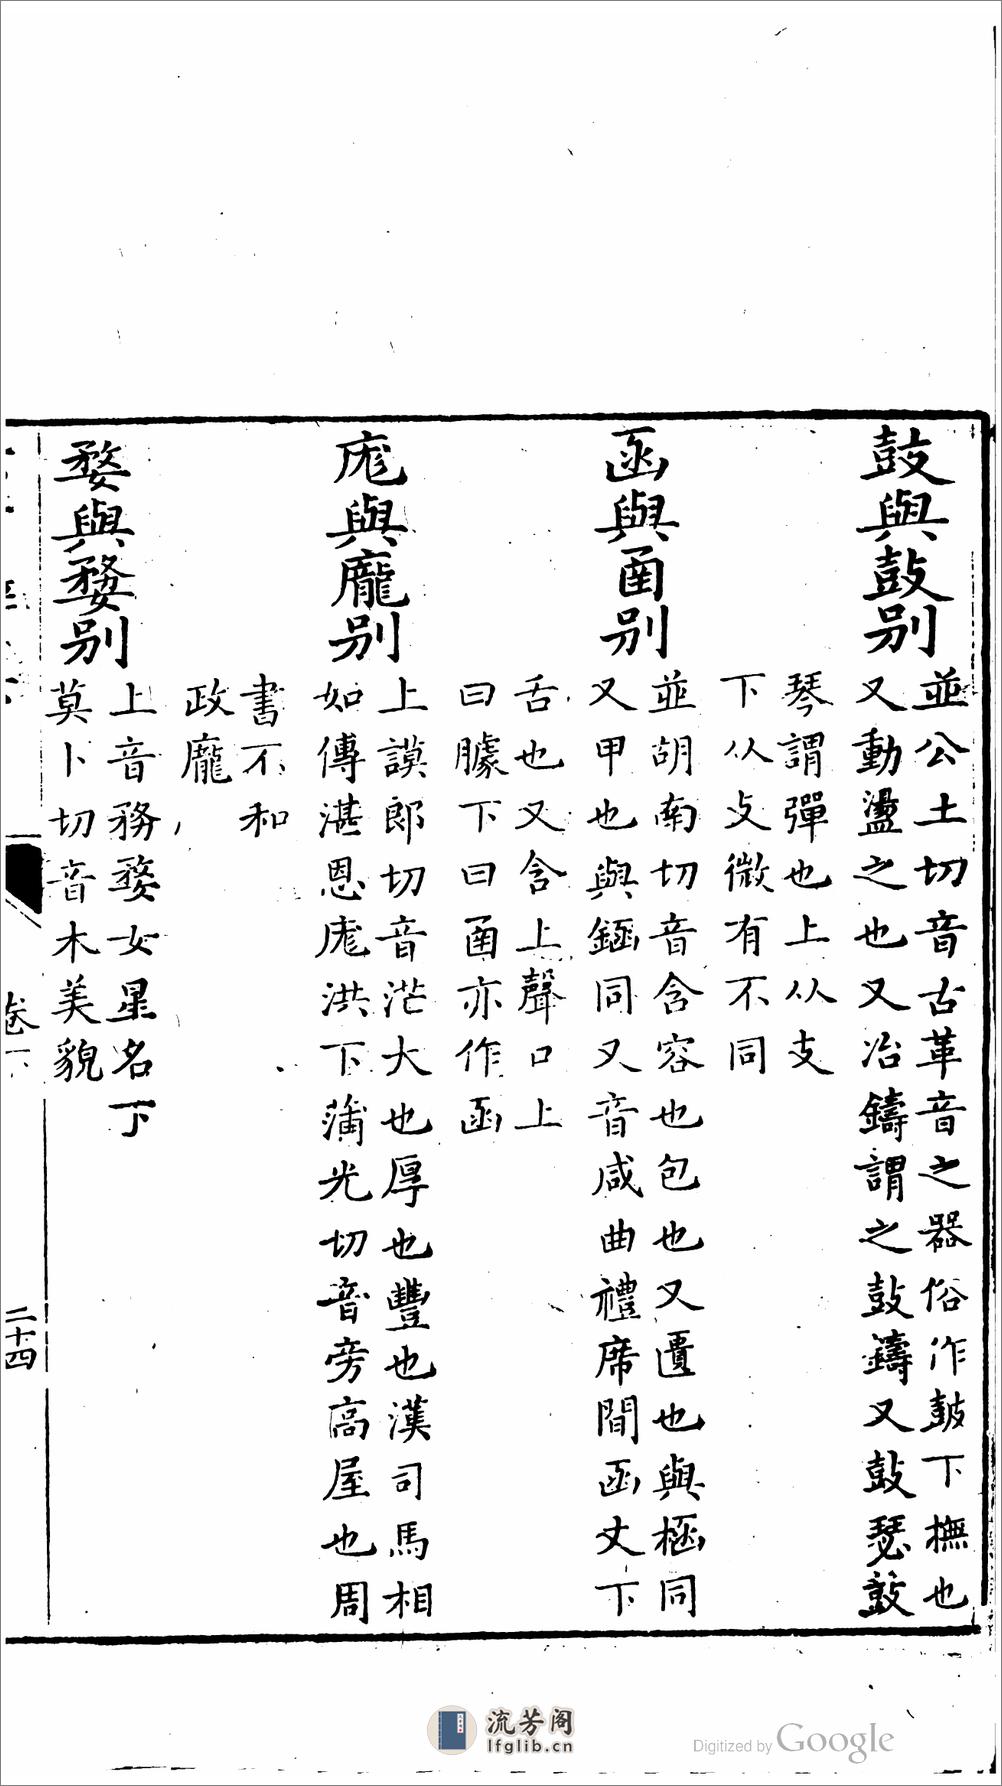 鼓與鼔別
並公土切音古革音之器俗作皷下撫也
又動盪之也又冶鑄謂之鼔鑄又鼔瑟鼔
琴謂彈也上从支
下从攴微有不同
函與㖤別
並胡南切音含容也包也又匱也與椷同
又甲也與鋡同又音咸曲禮席間函丈下
舌也又含上聲口上
曰臄下曰㖤亦作函
厖與龐別
上謨郎切音茫大也厚也豐也漢司馬相
如傳湛恩厖洪下蒲光切音旁高屋也周
書不和
政龐
婺與嫯別
上音務婺女星名下
莫卜切音木美貌
卷下
二十四
流芳阁
lfglib.cn
Digitized by Google